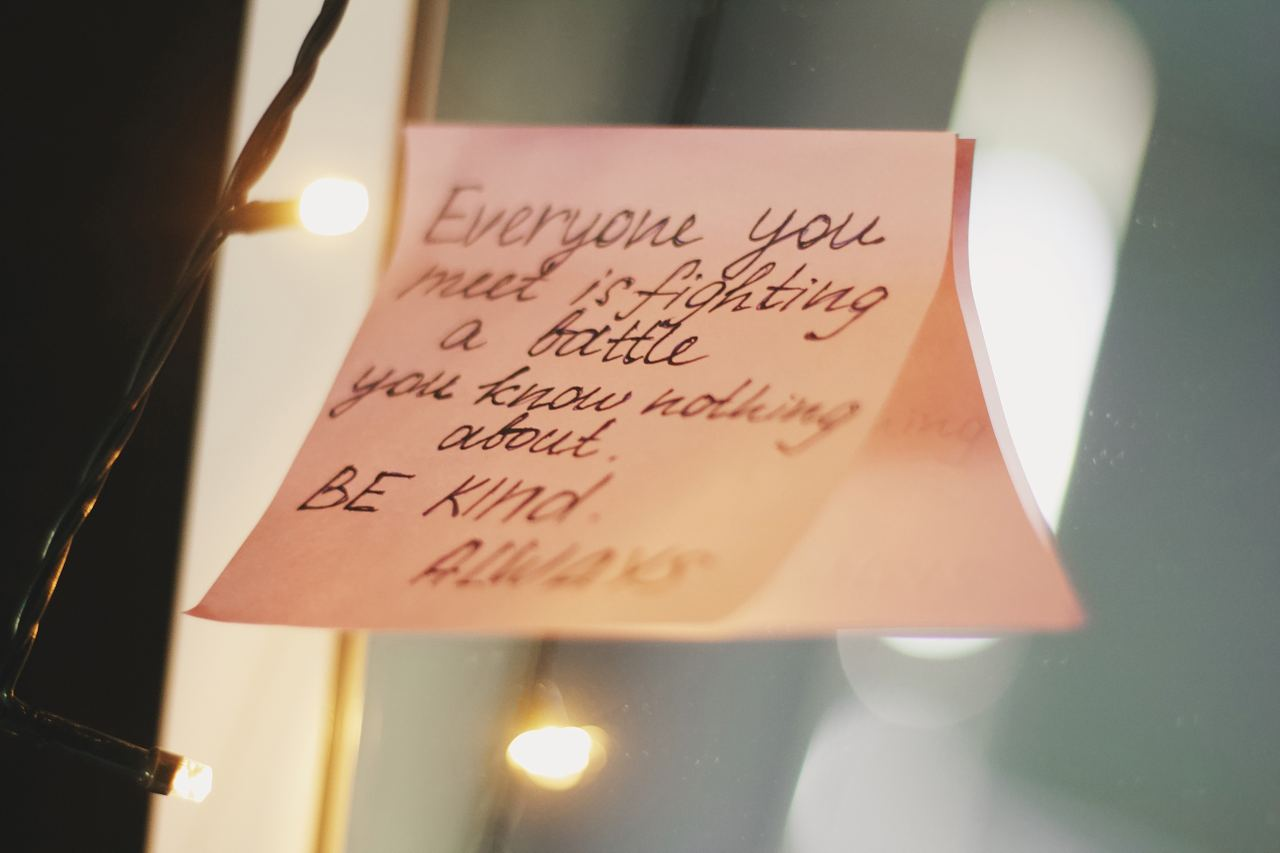 Everyone you
meet is fighting
a battle
you know nothing
about.
BE KInd.
ALWAYS